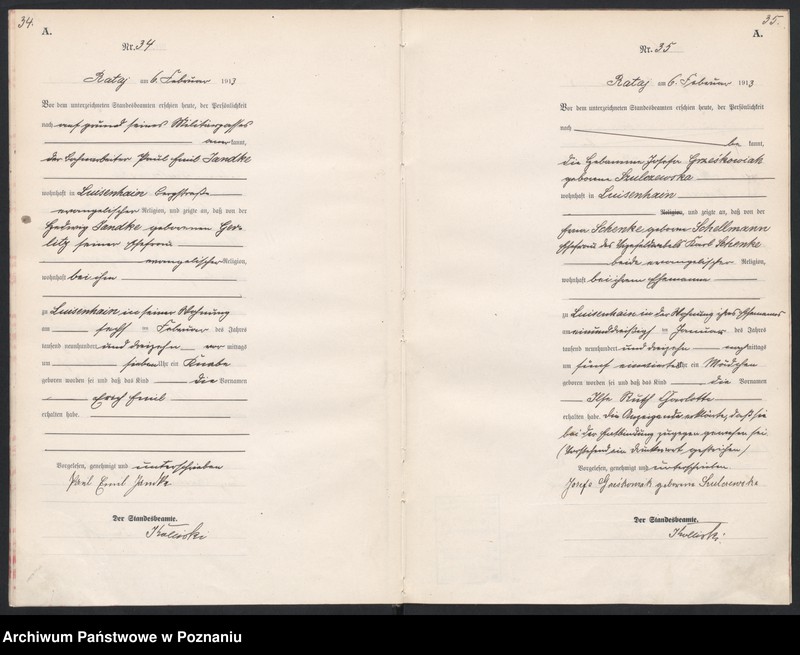 34.
A.
Nr. 34
Rataj am 6. Februar 1913
Vor dem unterzeichneten Standesbeamten erschien heute, der Persönlichkeit
nach auf Grund seines Militärpasses
anerkannt,
der Bahnarbeiter Paul Emil Jandke
wohnhaft in Luisenhain Bergstraße
evangelischer Religion, und zeigte an, daß von der
Hedwig Jandke geborenen Ger-
litz seiner Ehefrau
evangelischer Religion,
wohnhaft bei ihm
zu Luisenhain in seiner Wohnung
am sechs ten Februar des Jahres
tausend neunhundert und dreizehn vor mittags
um sieben Uhr ein Knabe
geboren worden sei und daß das Kind die Vornamen
Erich Emil
erhalten habe.
Vorgelesen, genehmigt und unterschrieben
Paul Emil Jandke
Der Standesbeamte.
35.
A.
Nr. 35
Rataj am 6. Februar 1913
Vor dem unterzeichneten Standesbeamten erschien heute, der Persönlichkeit
nach
be kannt,
die Hebamme Josefa Grześkowiak
geborene Szulczewska
wohnhaft in Luisenhain
Religion, und zeigte an, daß von der
Schenke geborne Schellmann
Ehefrau des Vizefeldwebels Karl Schenke
beide evangelischer Religion,
wohnhaft bei ihrem Ehemanne
zu Luisenhain in der Wohnung ihres Ehemannes
am einunddreißigsten Januar des Jahres
tausend neunhundert und dreizehn nachmittags
um fünf Uhr ein Mädchen
geboren worden sei und daß das Kind die Vornamen
Ilse Ruth Charlotte
erhalten habe. Die Anzeigende erklärte, daß sie
bei der Entbindung zugegen gewesen sei.
(Vorstehend ein Druckwort gestrichen)
Vorgelesen, genehmigt und unterschrieben
Josefa Grześkowiak geborene Szulczewska
Der Standesbeamte.
Archiwum Państwowe w Poznaniu